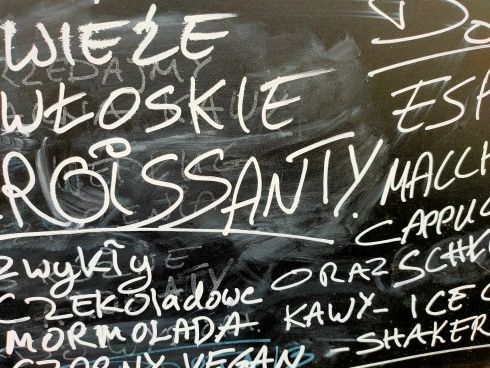 WIEŻE
WŁOSKIE
ROISSANTY.
zwykły
CZEKOladowe
MORMOLADA
CZARNY VEGAN
Do
ESP
MACCH
CAPPUC
ORAZ SCHŁ
KAWY- ICE C
- SHAKER